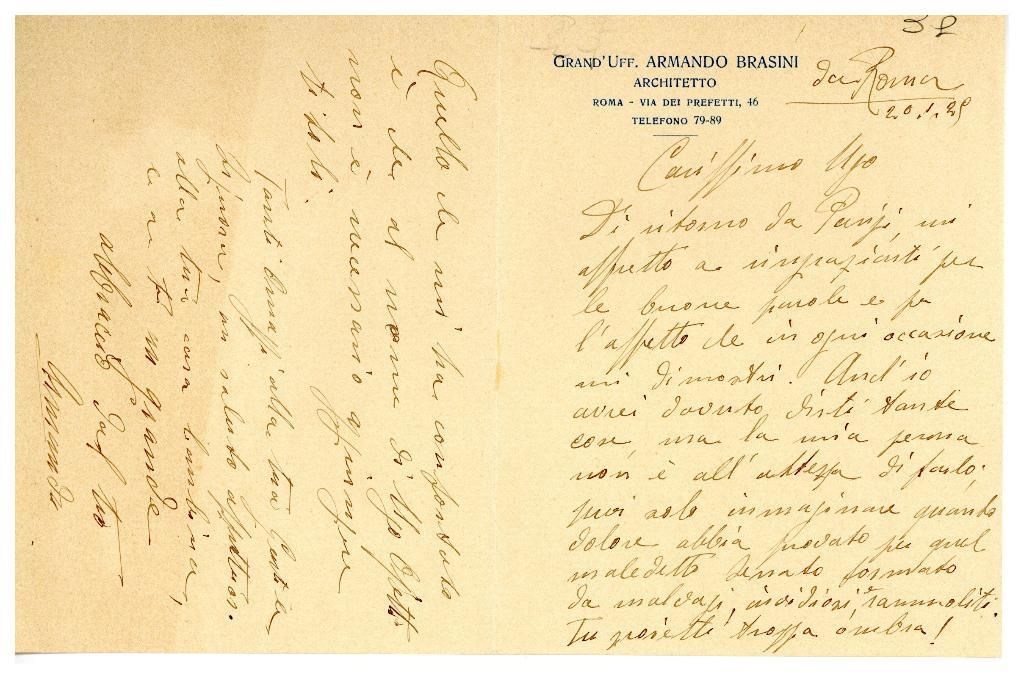 38
GRAND'UFF. ARMANDO BRASINI
ARCHITETTO
ROMA - VIA DEI PREFETTI, 46
TELEFONO 79-89
da Roma
20.1.29
Carissimo Ugo
Di ritorno da Parigi, mi
affretto a ringraziarti per
le buone parole e per
l'affetto che in ogni occasione
mi dimostri. Anch'io
avrei dovuto dirti tante
cose ma la mia penna
non è all'altezza di farlo.
puoi solo immaginare quanto
dolore abbia provato per quel
maledetto senato formato
da malvagi, invidiosi, rammoliti.
Tu proietti troppa ombra!
Quello che mi ha confortato
è che al nome di Ugo Ojetti
non è necessario aggiungere
titoli.
Tanti omaggi alla tua gentile
Signora, un saluto affettuoso
alla tua cara bambina,
e a te un grande
abbraccio dal tuo
Armando